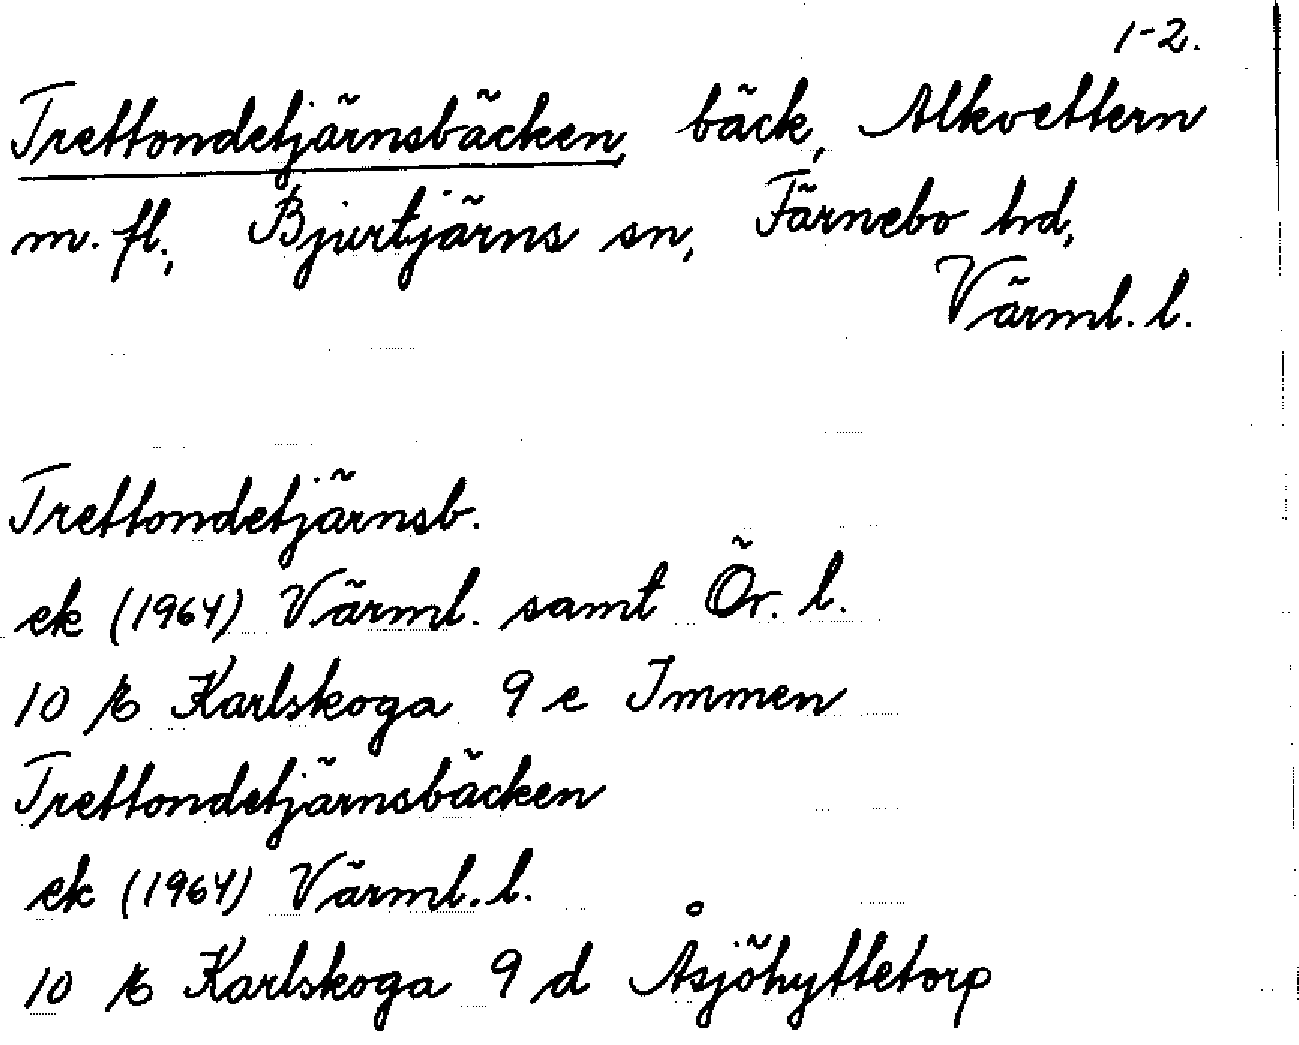 1-2.
Trettondetjärnsbäcken, bäck, Alkvettern
m. fl., Bjurtjärns sn, Färnebo hd,
Värml. l.
Trettondetjärnsb.
ek (1964) Värml. samt Ör. l.
10 E Karlskoga 9 e Immen
Trettondetjärnsbäcken
ek (1964) Värml. l.
10 E Karlskoga 9 d Åsjöhyttetorp